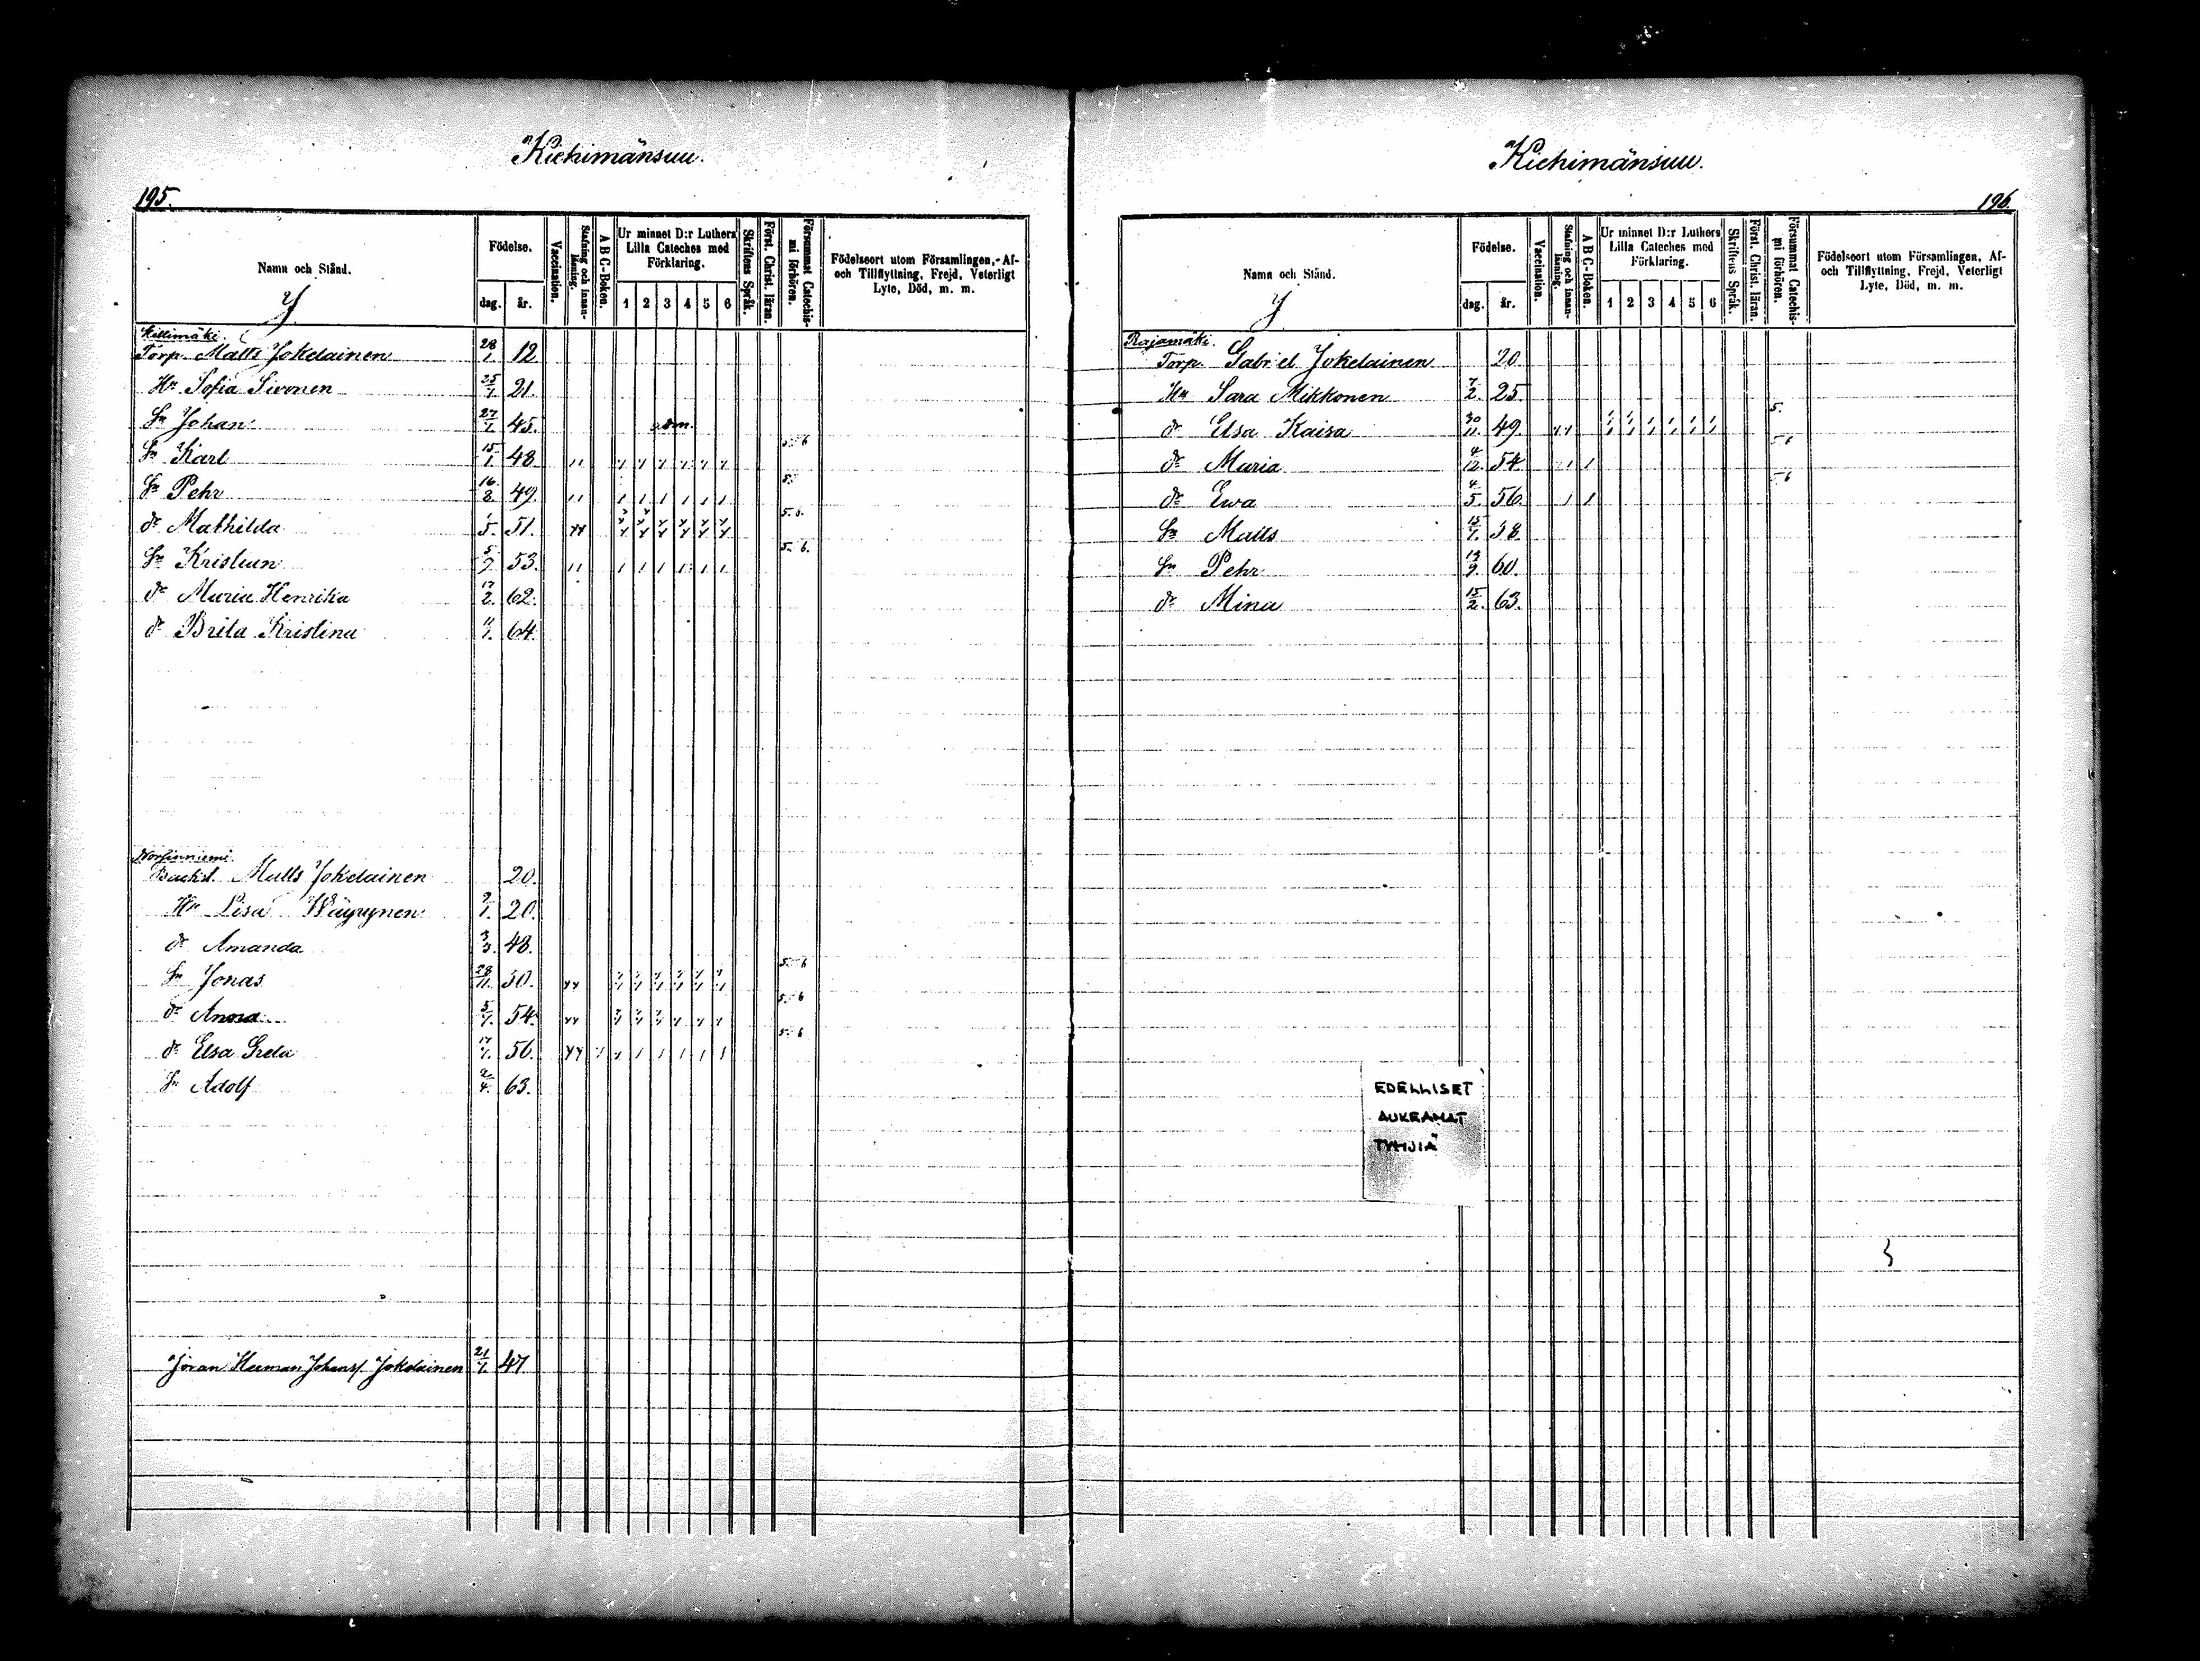 Kiehimänsuu.
195.
Namn och Stånd.
Födelse.
dag.
år.
Vaccination.
Stafning och innanläsning.
ABC-Boken.
Ur minnet D:r Luthers Lilla Cateches med Förklaring.
1 2 3 4 5 6
Skriftens Språk.
Först. Christ. läran.
Försummat Catechismi förhören.
Födelseort utom Församlingen, Af- och Tillflyttning, Frejd, Veterligt Lyte, Död, m. m.
Torp. Matts Jokelainen 28/1. 12
Hu Sofia Sivonen 25/1. 21.
Sn Johan 27/1. 45. adm.
Sn Karl 15/1. 48 5. 6
Sn Pehr 16/8. 49. 5.
dr Mathilda 1/5. 51. 5. 6.
Sn Kristian 5/7. 53. 5. 6.
dr Maria Henrika 17/2. 62.
dr Brita Kristina 11/1. 64.
Matts Jokelainen 20.
Hu Lisa Wäyrynen 9/1. 20.
dr Amanda 3/3. 48.
Sn Jonas 28/11. 50. 5. 6
dr Anna 5/7. 54. 5. 6
dr Elsa Greta 17/1. 56. 5. 6
Sn Adolf 2/4. 63.
Göran Herman Johanss. Jokelainen 21/1. 47.
Kiehimänsuu.
196.
Namn och Stånd.
Födelse.
dag.
år.
Vaccination.
Stafning och innanläsning.
ABC-Boken.
Ur minnet D:r Luthers Lilla Cateches med Förklaring.
1 2 3 4 5 6
Skriftens Språk.
Först. Christ. läran.
Försummat Catechismi förhören.
Födelseort utom Församlingen, Af- och Tillflyttning, Frejd, Veterligt Lyte, Död, m. m.
Rajamäki.
Torp. Gabriel Jokelainen 20.
Hu Sara Mikkonen 7/2. 25.
dr Elsa Kaisa 30/11. 49. 5.
dr Maria 4/12. 54. 5 6
dr Ewa 4/5. 56. 5 6
Sn Matts 15/7. 58.
Sn Pehr 13/9. 60.
dr Mina 15/2. 63.
EDELLISET
AUKEAMAT
TYHJIÄ